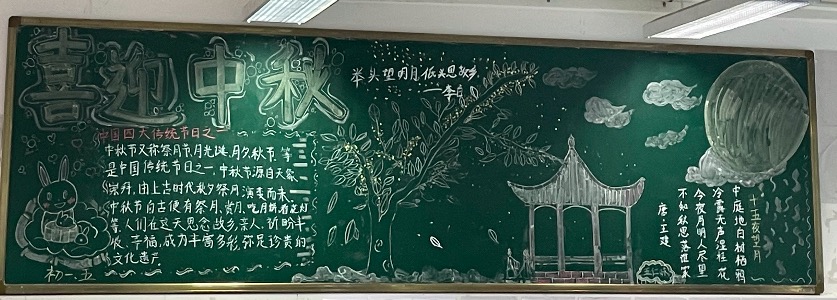 喜迎中秋
举头望明月低头思故乡
——李白
中国四大传统节日之一
中秋节又称祭月节、月光诞、月夕、秋节、等
是中国传统节日之一中秋节源自天象
崇拜,由上古时代秋夕祭月演变而来.
中秋节自古便有祭月、赏月、吃月饼
等,人们在这天思念故乡亲人、祈盼丰
收、幸福,成为丰富多彩,弥足珍贵的
文化遗产
初一.五
十五夜望月
中庭地白树栖鸦
冷露无声湿桂花
今夜月明人尽望
不知秋思落谁家
唐·王建